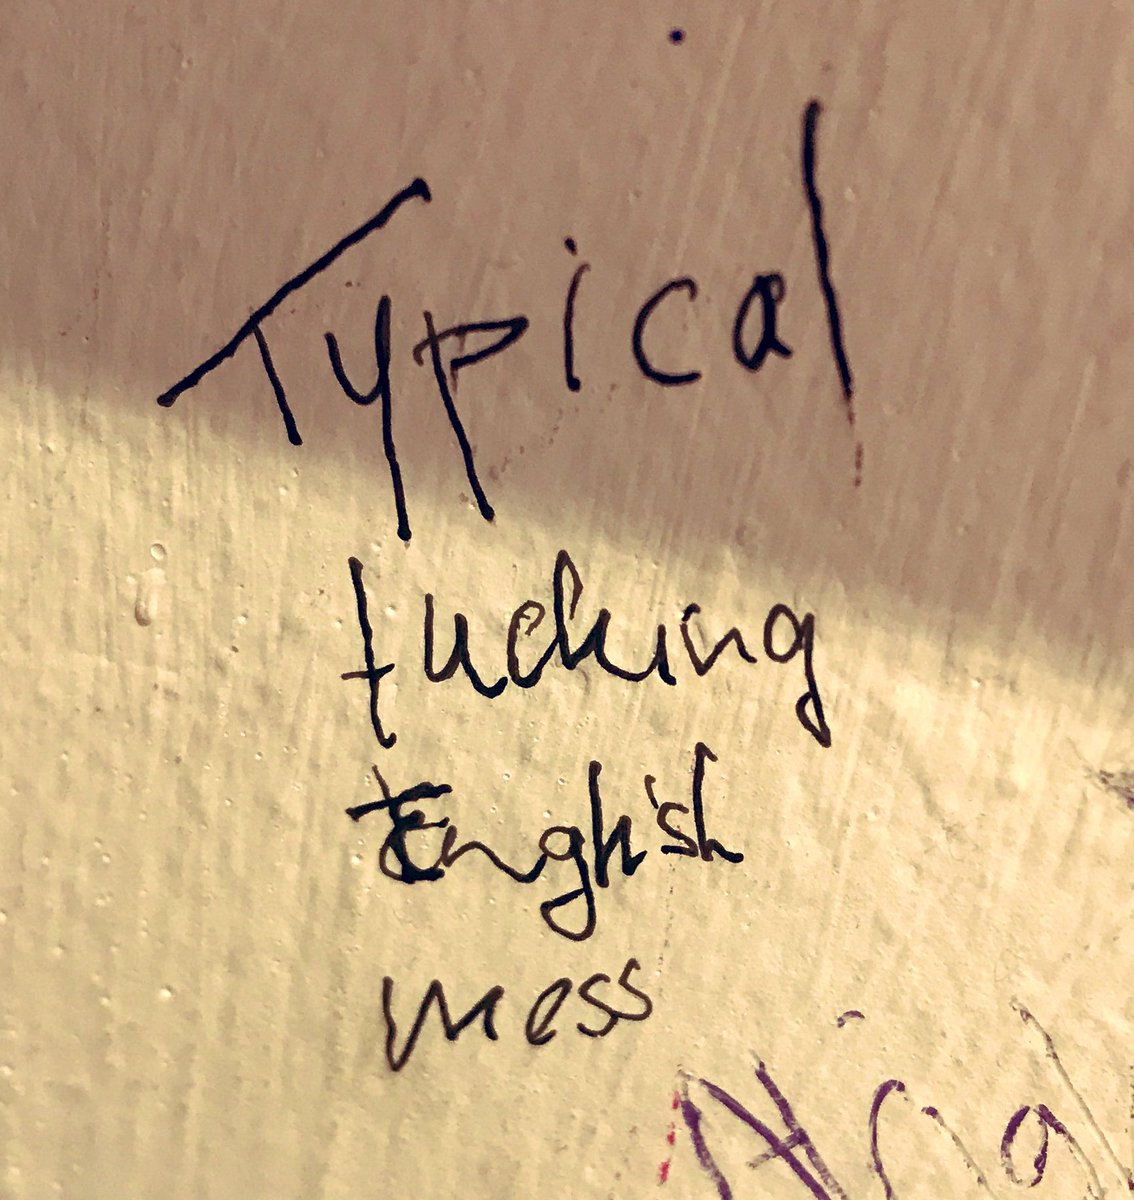 Typical
fucking
English
mess